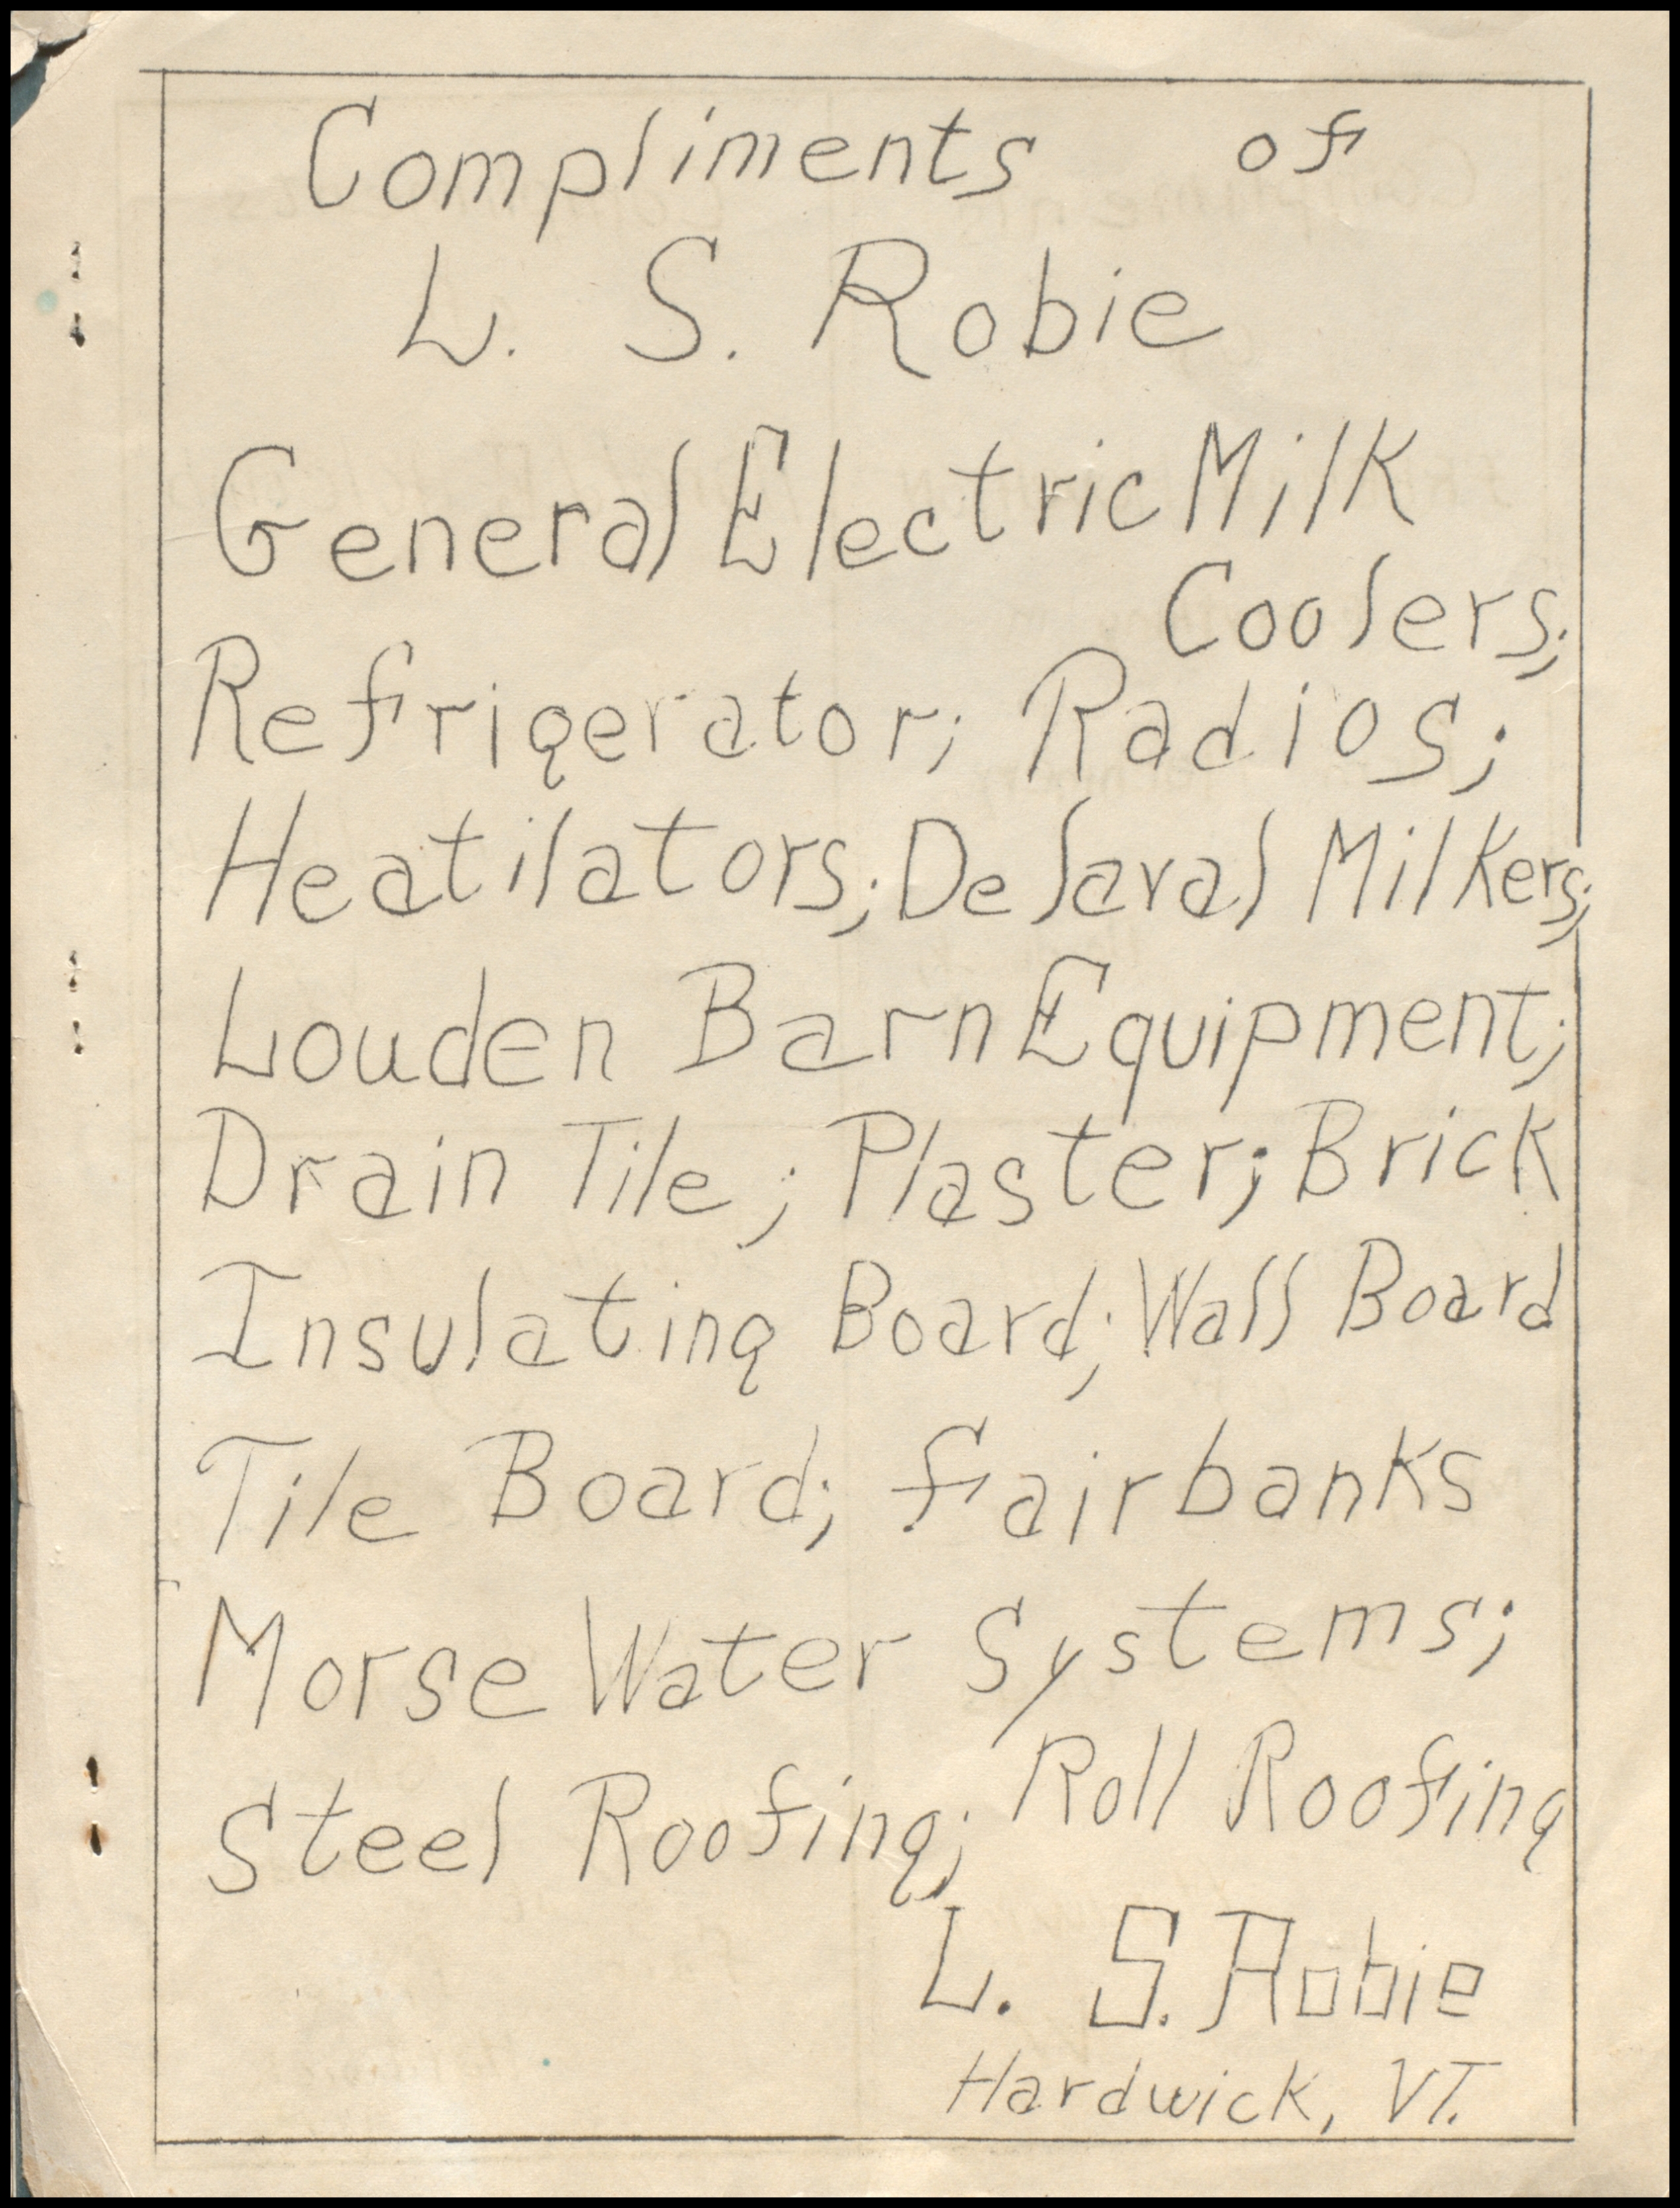 Compliments of
L. S. Robie
General Electric Milk
Coolers;
Refrigerator; Radios;
Heatilators; De Laval Milkers;
Louden Barn Equipment;
Drain Tile; Plaster; Brick
Insulating Board; Wall Board
Tile Board; Fairbanks
Morse Water Systems;
Steel Roofing; Roll Roofing
L. S. Robie
Hardwick, VT.